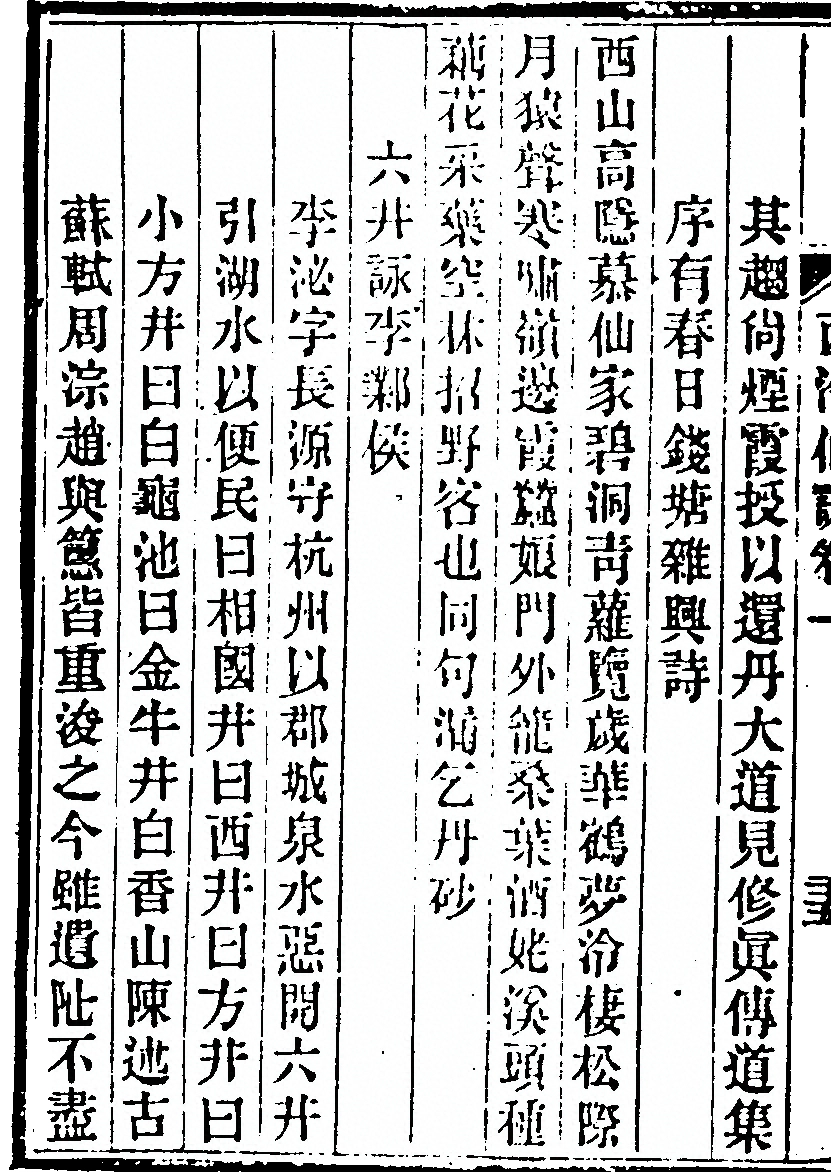 其趨尙煙霞授以還丹大道見修眞傳道集
序有春日錢塘雜興詩
西山高隱慕仙家碧洞靑蘿覽歲華鶴夢冷棲松際
月猿聲寒嘯嶺邊霞蠶娘門外籠桑葉酒姥溪頭種
藕花采藥空林招野客也同句漏乞丹砂
六井詠李鄴侯
李泌字長源守杭州以郡城泉水惡開六井
引湖水以便民曰相國井曰西井曰方井曰
小方井曰白龜池曰金牛井白香山陳述古
蘇軾周淙趙與𥲅皆重浚之今雖遺阯不盡